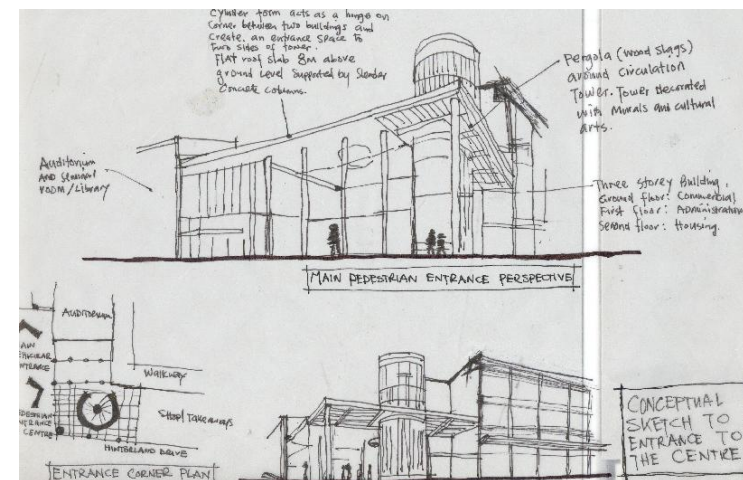 Cylinder form acts as a hinge on
corner between two buildings and
Create, an entrance space to
two sides of tower.
Flat roof slab 8m above
ground level supported by slender
Concrete columns.
Pergola (wood slaggs)
around circulation
Tower. Tower decorated
with Murals and cultural
arts.
Auditorium
AND Seminar
room/Library
Three storey Building.
Ground floor: Commercial
First floor: Administration
Second floor: Housing.
MAIN PEDESTRIAN ENTRANCE PERSPECTIVE
AUDITORIUM
WALKWAY
Shop/Takeaways
HINTERLAND DRIVE
ENTRANCE CORNER PLAN
CONCEPTUAL
SKETCH TO
ENTRANCE TO
THE CENTRE